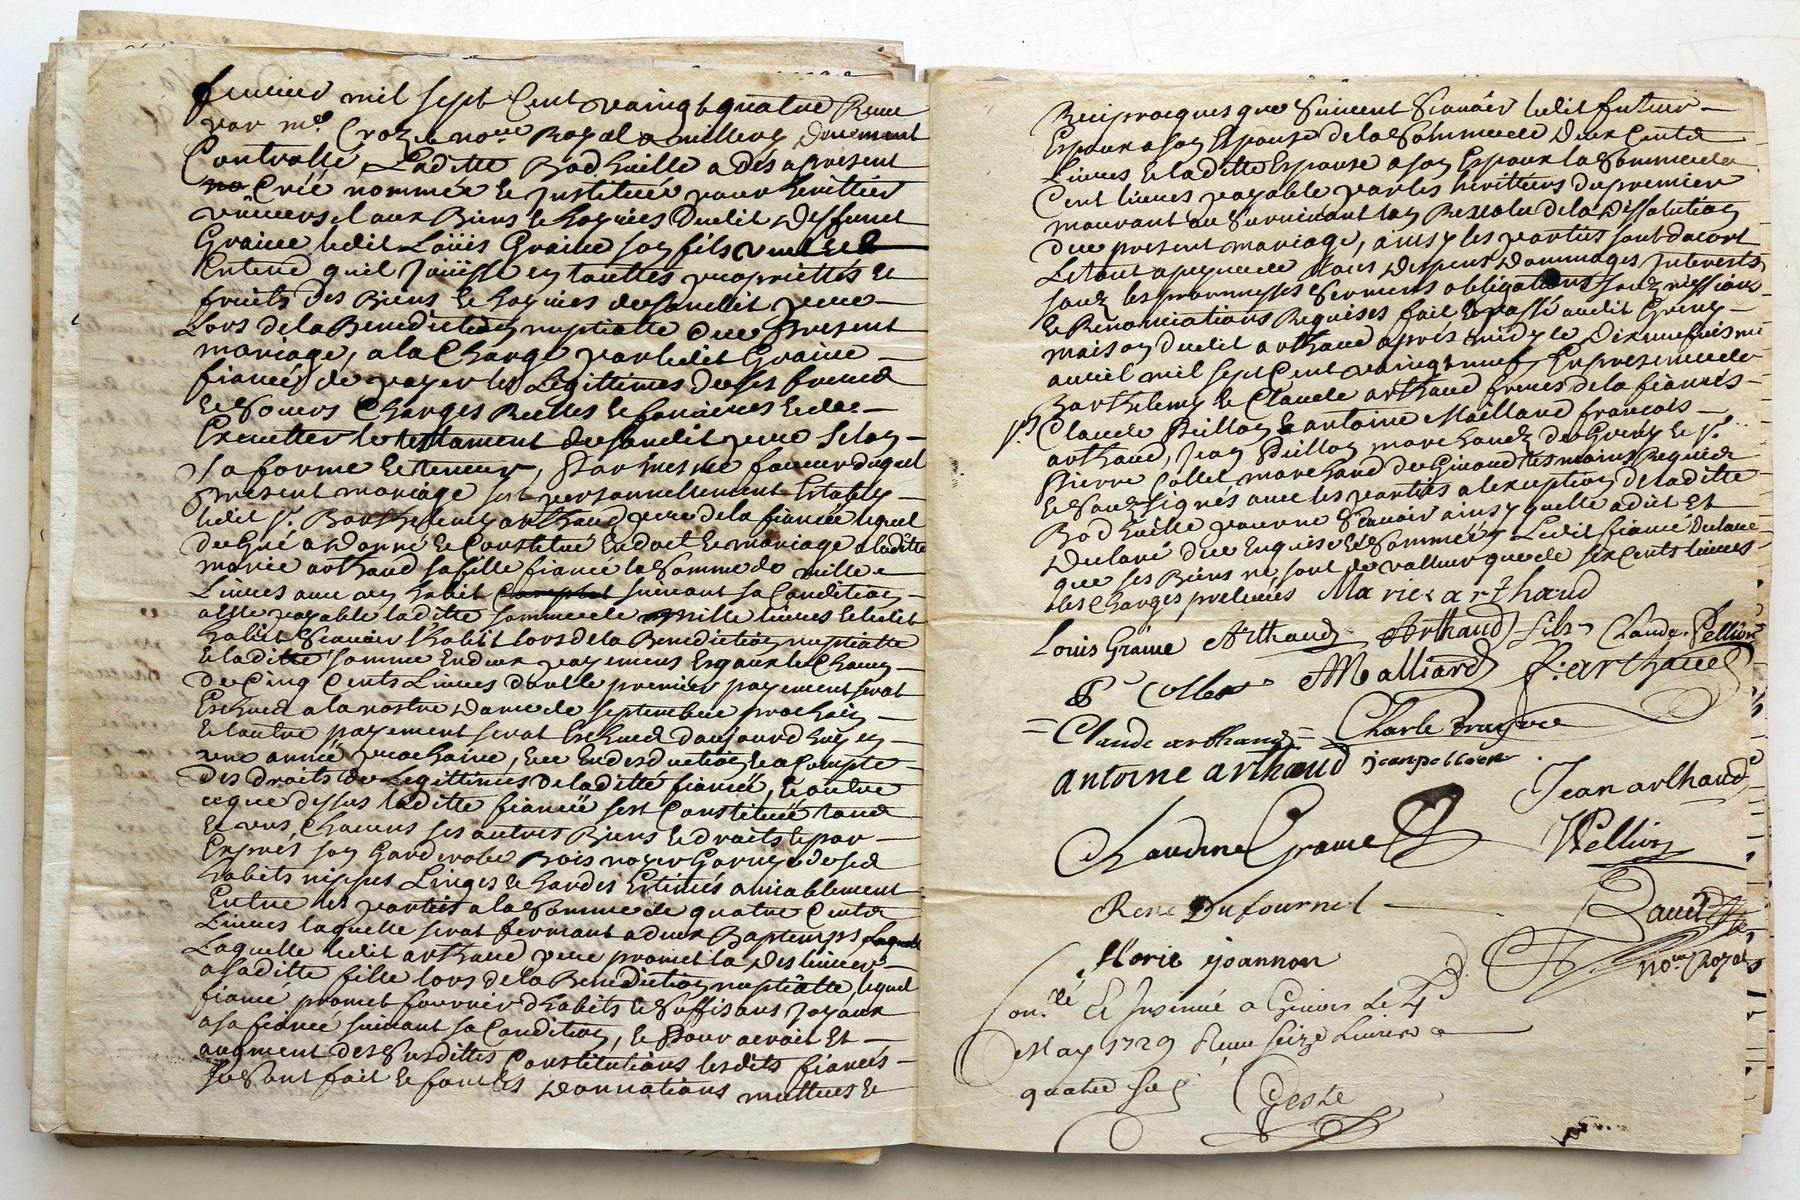 fevrier mil sept Cent vaingt quatre Receu
par me. Crozet nore Royal a millery Duement
Controllé, Laditte Bod huille a des a present
no Créé nommée et Institué pour heritier
universel aux Biens et hoyries Dudit Deffunct
Graine ledit Loüis Graine son fils
Entend quil Joüisse en touttes proprietés et
fruits des Biens et hoyries dusandit pere
Lors de la Benediction nuptialle du present
mariage, a la Charge par ledit Graine
fiancé de payer les Legittimes de ses freres
et Soeurs Charges Reelles et foncieres et de
Executter le testament dususdit pere selon
sa forme et teneur, Par mesme faveur duquel
present mariage sest personnellement Estably
ledit sr. Barthelemy arthaud pere de la fiancée lequel
de Gré a Donné et Constitué En dot de mariage a laditte
marie arthaud sa fille fiancée la Somme de mille
Livres avec un habit suivant sa Condition
alle payable laditte somme de mille livres et ledit
habit Scavoir lhabit lors de la Benediction nuptialle
et laditte somme En deux payements Egaux et Chacun
de Cinq Cents Livres dont le premier payement serat
Escheu a la nostre Dame de septembre prochain
et lautre payement serat Escheu daujourdhuy en
une année prochaine, et ce En desduction et a Compte
des droits de Legittimes de laditte fiancée, Et outre
ce que dessus laditte fiancée sest Constituée tous
et uns Chacuns ses autres Biens et droits et par
Exprés son Garderobe Bois noyer Garny de ses
habits nippes Linges et hardes Estimés amiablement
Entre les parties a la Somme de quatre Cents
Livres laquelle serat fermant a deux
Laquelle ledit arthaud pere promet la Deslivrer
a saditte fille lors de la Benediction nuptialle, lequel
fiancé promet fournir dhabits et Suffisans Joyaux
a sa fiancée suivant sa Condition, Et Pour
augment des Susdittes Constitutions lesdits fiancés
se sont fait et font les Donnations mutuelles et
Reciprocques que Suivent Scavoir ledit futur
Espoux a son Espouse de la Somme de Deux Cents
Livres et laditte Espouse a son Espoux la Somme de
Cent livres payable par les heritiers du premier
mourant au Survivant lors de la Dissolution
du present mariage, ainsy les parties sont dacort
Letout a peyne de tous Despens Dommages Interests
souz les promesses Serments obligations souzmissions
et Renonciations Requises fait et passé audit Grigny
maison dudit arthaud apres midy le Dixneufvisme
avril mil sept Cent vaingt neuf En presence de
Barthelemy et Claude arthaud freres de la fiancée
Claude Peillon et antoine Maillard françois
arthaud, Jean Peillon marchandz de Grigny et sr.
Pierre Collet marchand de Givord tesmoins Requis
et Souzsignés avec les parties a lexeption de laditte
Bod huille pour ne Scavoir ainsy quelle a dit Et
Declaré Due Enquise et Sommée, Ledit fiancé Declare
que ses Biens ne sont de valleur que de six Cents livres
les Charges prelevés Marie arthaud
Louis Graine Arthaud Arthaud fils Claude Pellion
P Collet AMalliard f. arthaud
= Claude arthaud = Charle
antoine arthaud jean pellion
Jean arthaud
Claudine Graine Pellion
Rene Dufournel
Marie joannon
nore Royal
Conllé Et Insinué a Givors Le 4e
May 1729 Receu Seize Livres
quatre sols